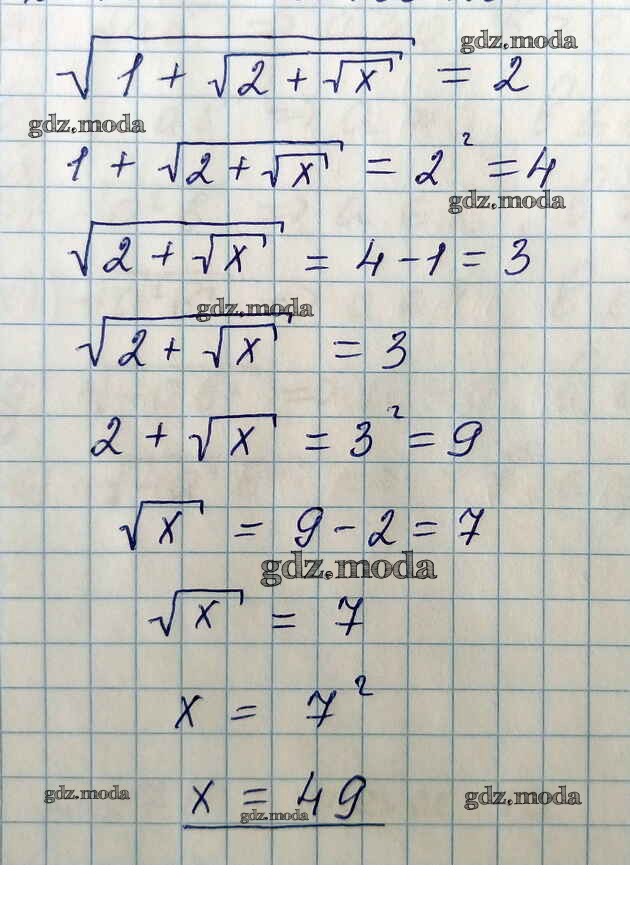 gdz.moda
√(1 + √(2 + √x)) = 2
gdz.moda
1 + √(2 + √x) = 2² = 4
gdz.moda
√(2 + √x) = 4 - 1 = 3
gdz.moda
√(2 + √x) = 3
2 + √x = 3² = 9
√x = 9 - 2 = 7
gdz.moda
√x = 7
x = 7²
gdz.moda x = 49 gdz.moda
gdz.moda